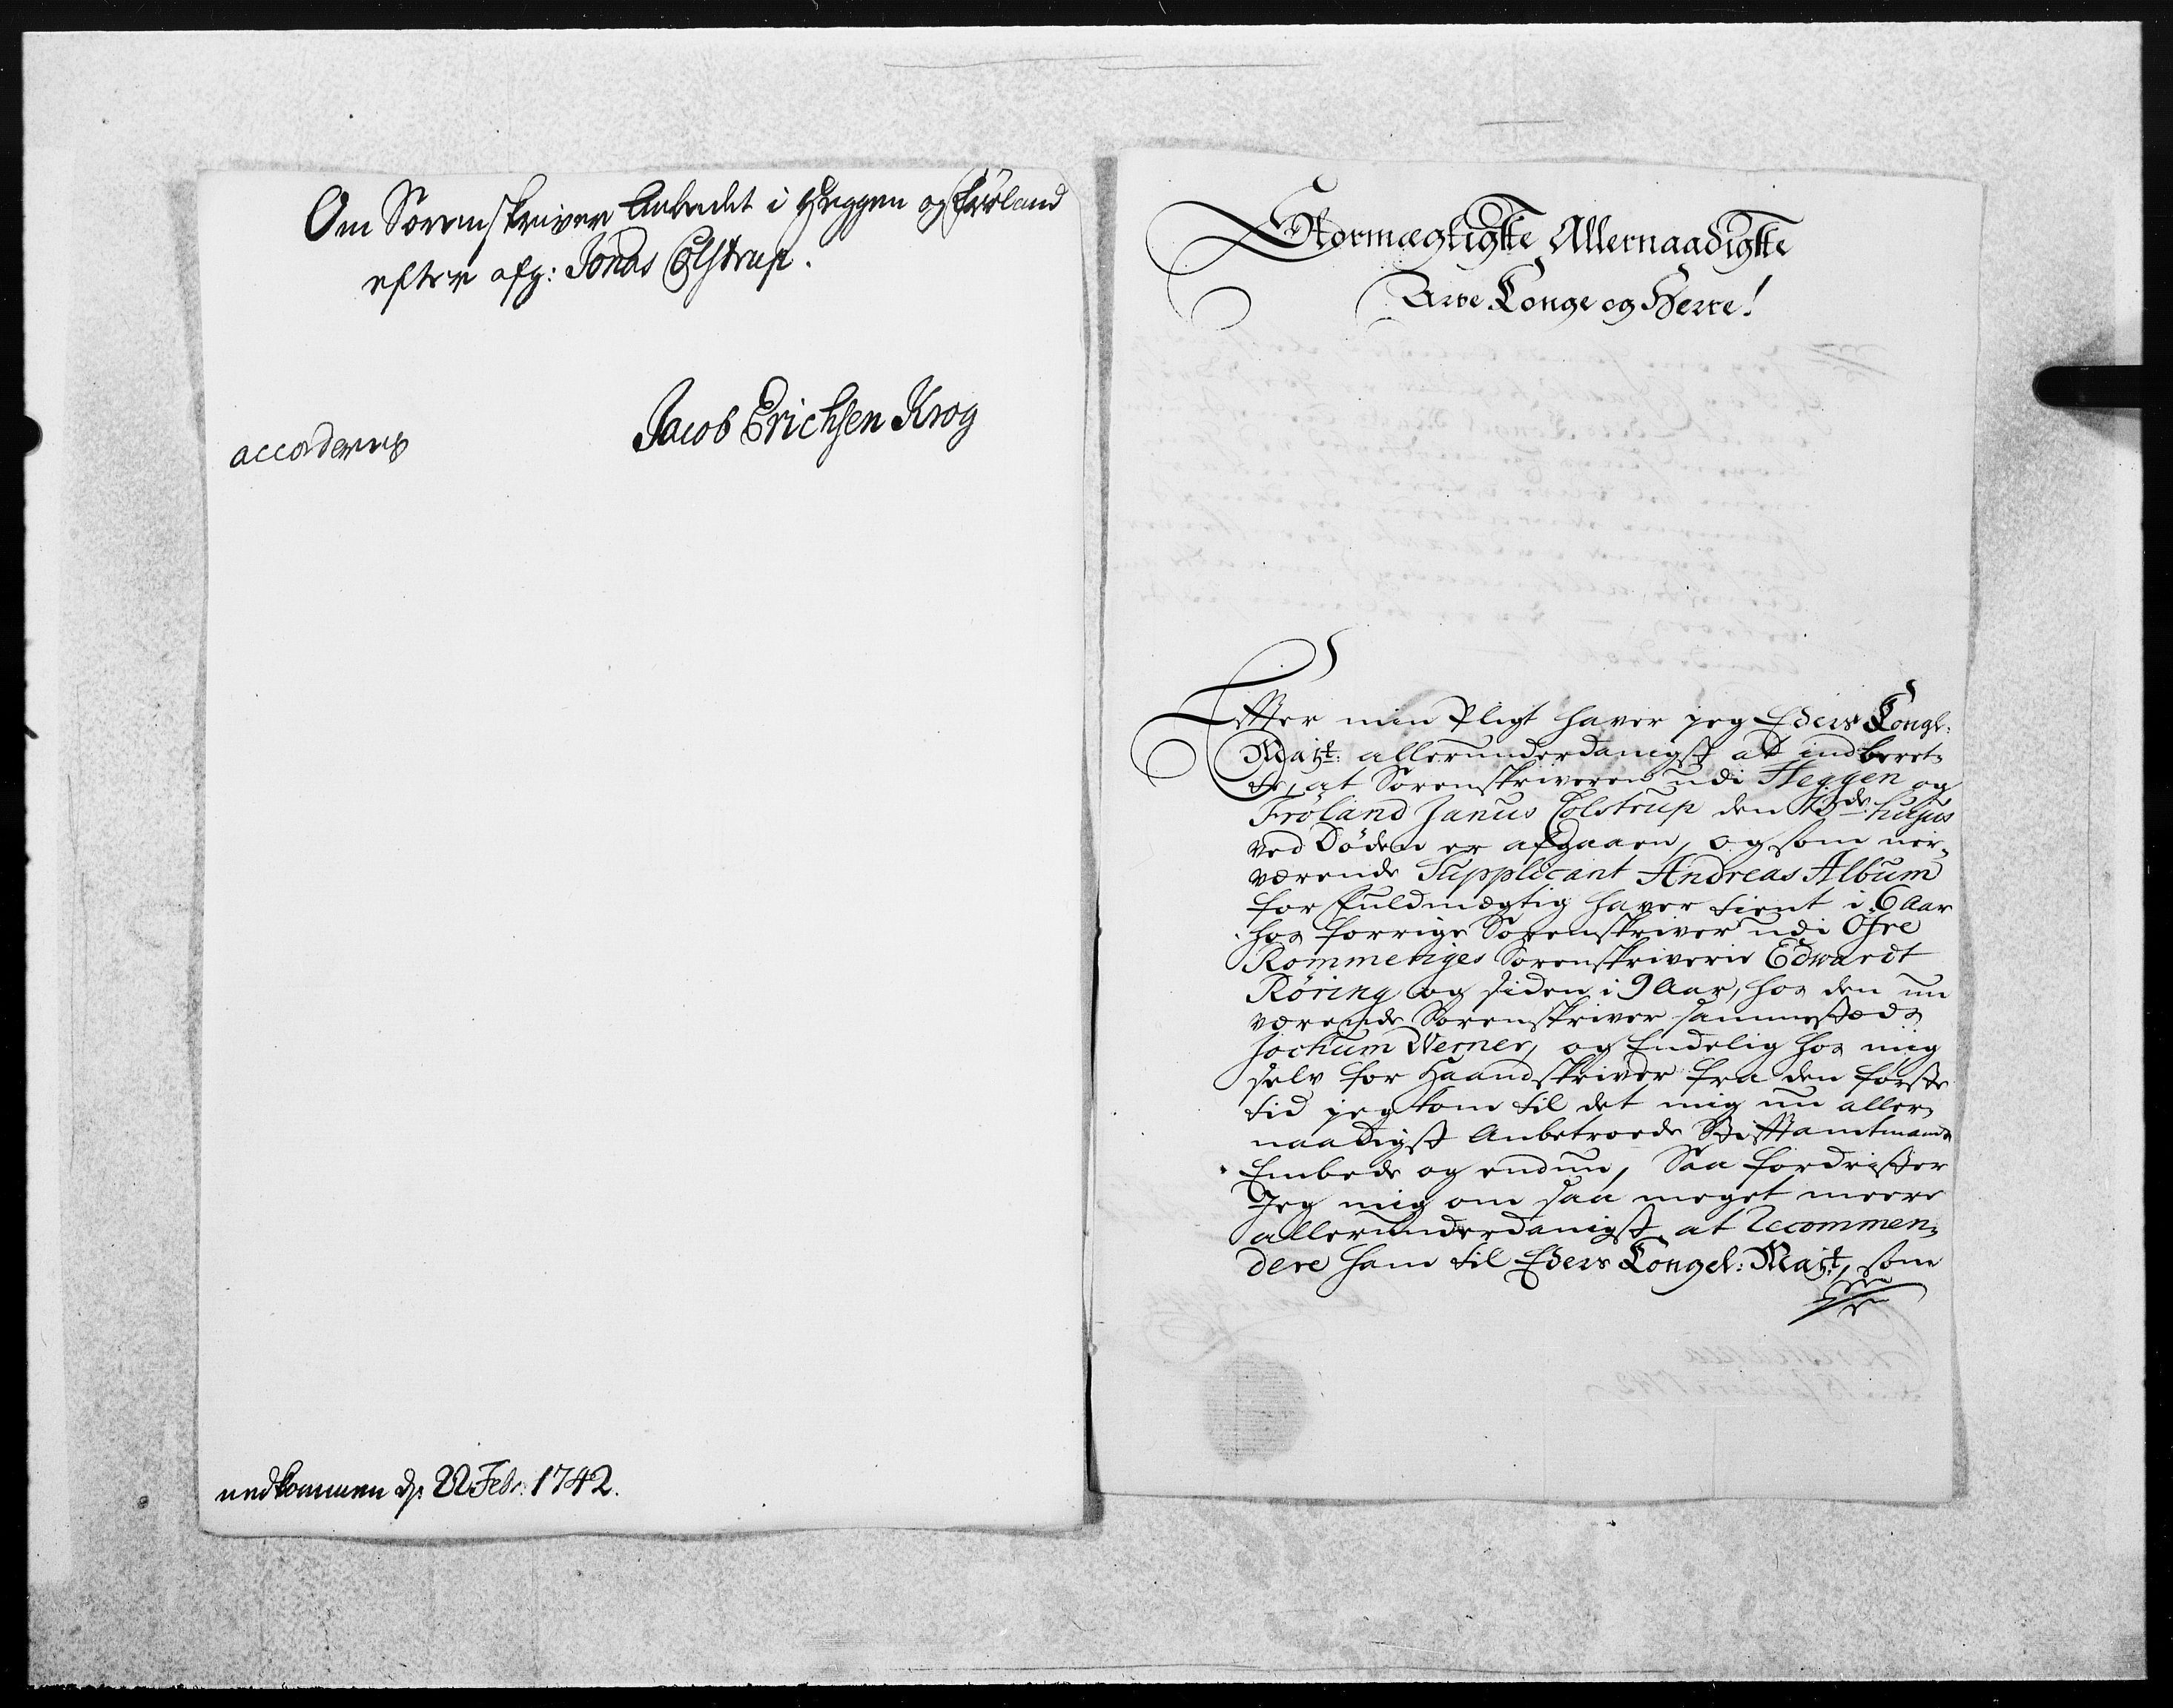 Om Sorenskriver Embedet i Heggen og Frøland
efter afg: Jonas Colstrup.
Jacob Erichsen Krog
accorderes
nedkommen d: 22 Febr: 1742.
Stormægtigste Allernaadigste
Arve Konge og Herre!
Efter min Pligt haver jeg Eders Kongl:
Mayt: allerunderdanigst at indberet-
te, at Sorenskriveren udi Heggen og
Frøland Janus Colstrup den hujus
ved Døden er afgaaen, og som nær-
værende Supplicant Andreas Album
for Fuldmægtig haver tient i 6 Aar
hos forrige Sorenskriver udi Øfre
Rommeriges Sorenskriverie Edwardt
Röring og siden i 9 Aar, hos den nu
værende Sorenskriver sammestæds
Jochum Werner, og Endelig hos mig
selv for Haandskriver fra den første
tid jeg kom til det mig nu aller-
naadigst Anbetroede Stiftamtmands
Embede og endnu, Saa fordrister
Jeg mig om saa meget meere
allerunderdanigst at Recommen-
dere ham til Eders Kongel: Mayt, som